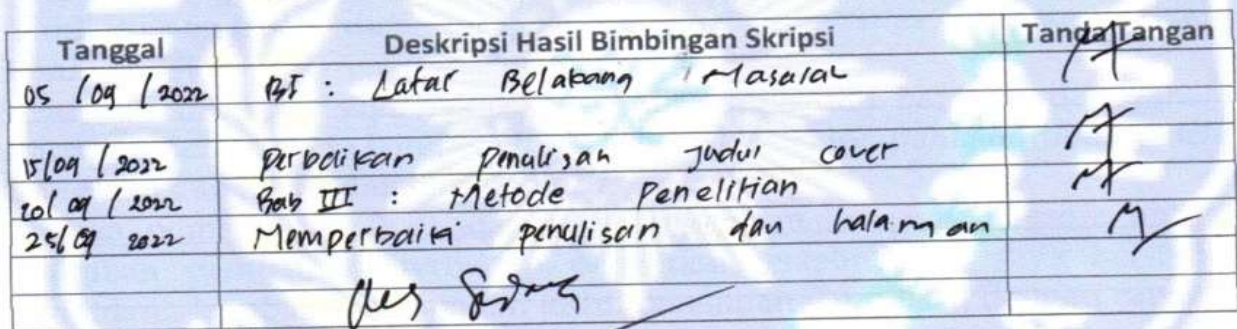 Tanggal Deskripsi Hasil Bimbingan Skripsi Tanda Tangan
05 /09 / 2022 BI : Latar Belakang Masalah
15/09 / 2022 perbaikan penulisan judul cover
20/ 09 / 2022 Bab III : Metode Penelitian
25/ 09 2022 Memperbaiki penulisan dan halaman